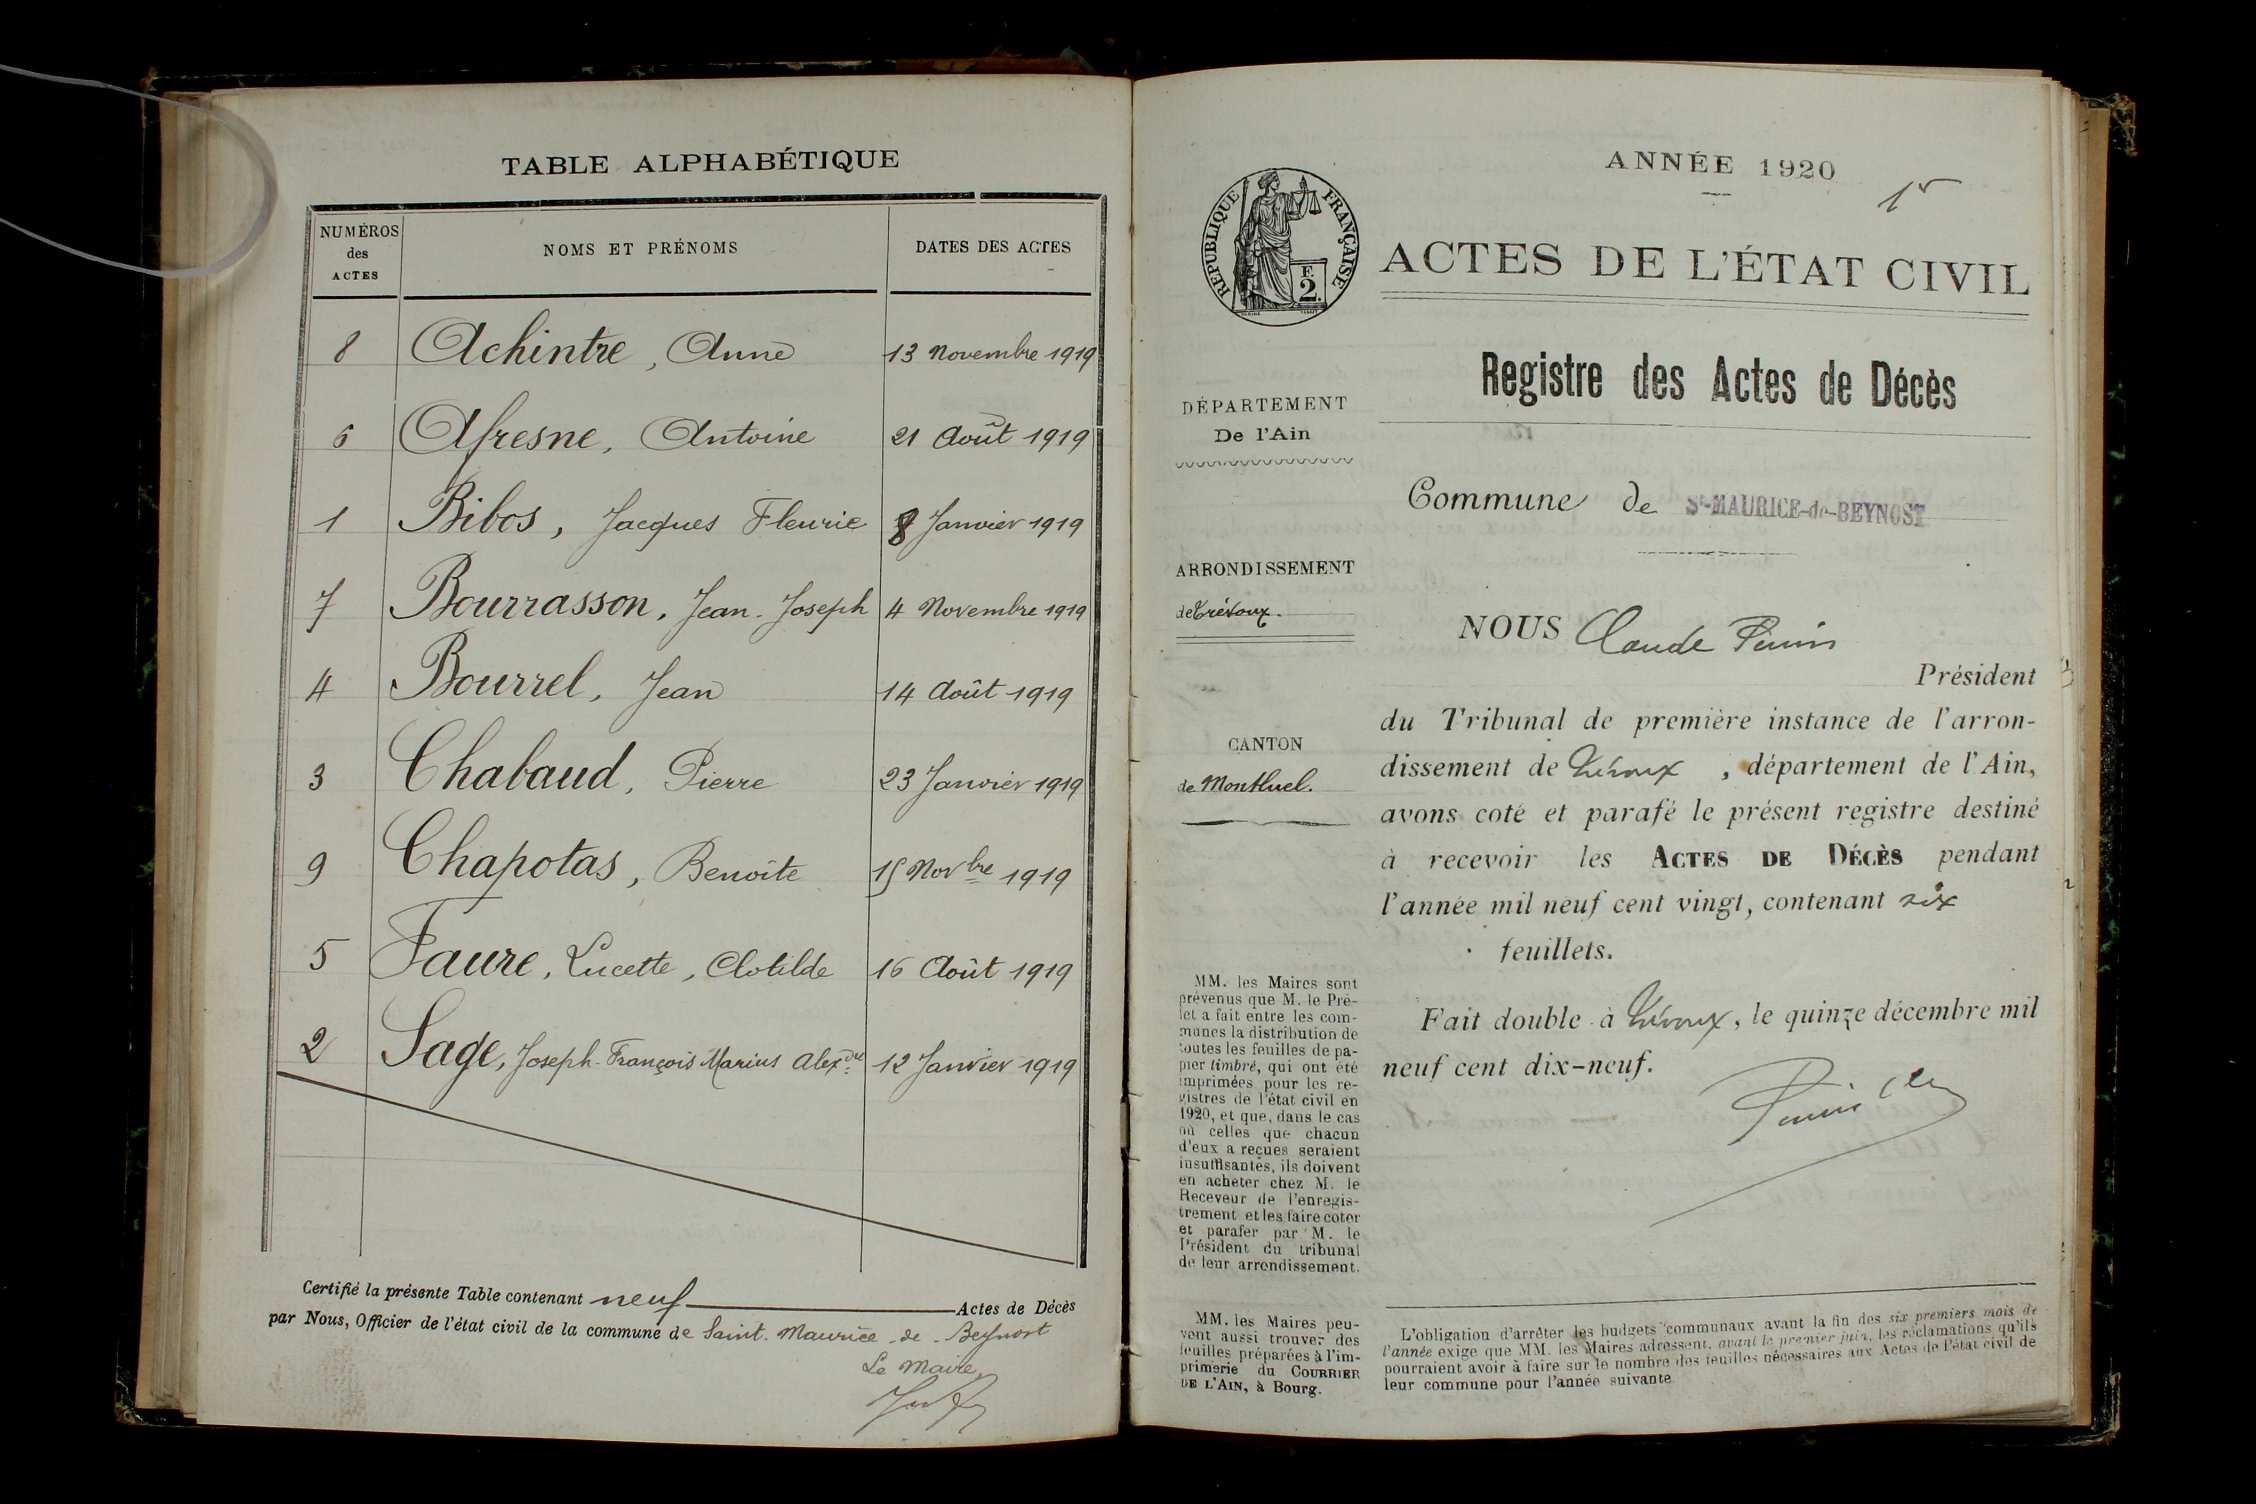 TABLE ALPHABÉTIQUE
NUMÉROS
des
ACTES
NOMS ET PRÉNOMS
DATES DES ACTES
8 Achintre, Anne 13 Novembre 1919
6 Afresne, Antoine 21 Août 1919
1 Bibos, Jacques Fleurie 8 Janvier 1919
7 Bourrasson, Jean-Joseph 4 Novembre 1919
4 Bourrel, Jean 14 Août 1919
3 Chabaud, Pierre 23 Janvier 1919
9 Chapotas, Benoîte 15 Novbre 1919
5 Faure, Lucette, Clotilde 16 Août 1919
2 Sage, Joseph-François Marius Alexdre 12 Janvier 1919
Certifié la présente Table contenant neuf Actes de Décès
par Nous, Officier de l'état civil de la commune de Saint-Maurice-de-Beynost
Le Maire,
ANNÉE 1920
1r
RÉPUBLIQUE FRANÇAISE
F.
2.
ACTES DE L'ÉTAT CIVIL
Registre des Actes de Décès
DÉPARTEMENT
De l'Ain
Commune de St-MAURICE-de-BEYNOST
ARRONDISSEMENT
de Trévoux.
CANTON
de Montluel.
NOUS Claude
Président
du Tribunal de première instance de l'arron-
dissement de Trévoux, département de l'Ain,
avons coté et parafé le présent registre destiné
à recevoir les ACTES DE DÉCÈS pendant
l'année mil neuf cent vingt, contenant six
feuillets.
Fait double à Trévoux, le quinze décembre mil
neuf cent dix-neuf.
MM. les Maires sont
prévenus que M. le Pré-
fet a fait entre les com-
munes la distribution de
toutes les feuilles de pa-
pier timbré, qui ont été
imprimées pour les re-
gistres de l'état civil en
1920, et que, dans le cas
où celles que chacun
d'eux a reçues seraient
insuffisantes, ils doivent
en acheter chez M. le
Receveur de l'enregis-
trement et les faire coter
et parafer par M. le
Président du tribunal
de leur arrondissement.
MM. les Maires peu-
vent aussi trouver des
feuilles préparées à l'im-
primerie du COURRIER
DE L'AIN, à Bourg.
L'obligation d'arrêter les budgets communaux avant la fin des six premiers mois de
l'année exige que MM. les Maires adressent, avant le premier juin, les réclamations qu'ils
pourraient avoir à faire sur le nombre des feuilles nécessaires aux Actes de l'état civil de
leur commune pour l'année suivante